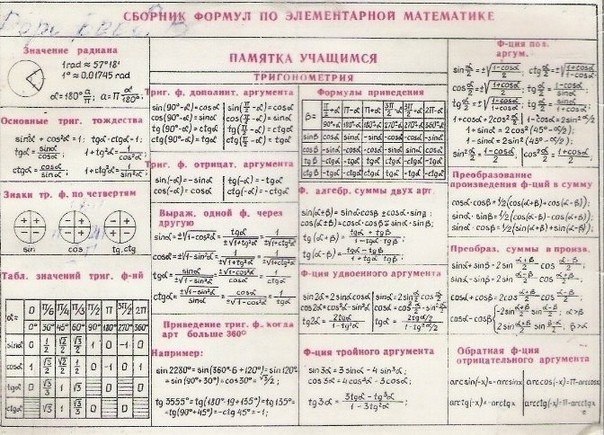 СБОРНИК ФОРМУЛ ПО ЭЛЕМЕНТАРНОЙ МАТЕМАТИКЕ
ПАМЯТКА УЧАЩИМСЯ
ТРИГОНОМЕТРИЯ
Значение радиана
1rad ≈ 57°18'
1° ≈ 0.01745 rad
α=180° a/π; a=π α/180°.
Основные триг. тождества
sin²α + cos²α = 1; tgα·ctgα=1;
tgα = sinα/cosα; 1+tg²α = 1/cos²α
ctgα = cosα/sinα; 1+ctg²α = 1/sin²α;
Знаки тр. ф. по четвертям
sin cos tg, ctg
Табл. значений триг. ф-ий
α= 0 π/6 π/4 π/3 π/2 π 3π/2 2π
0° 30° 45° 60° 90° 180° 270° 360°
sinα 0 1/2 √2/2 √3/2 1 0 -1 0
cosα 1 √3/2 √2/2 1/2 0 -1 0 1
tgα 0 √3/3 1 √3 0 0
ctgα √3 1 √3/3 0 0
Триг. ф. дополнит. аргумента
sin(90°-α)=cosα sin(π/2-α)=cosα
cos(90°-α)=sinα cos(π/2-α)=sinα
tg(90°-α)=ctgα tg(π/2-α)=ctgα
ctg(90°-α)=tgα ctg(π/2-α)=tgα
Триг. ф. отрицат. аргумента
sin(-α)=-sinα tg(-α)=-tgα
cos(-α)=cosα ctg(-α)=-ctgα
Выраж. одной ф. через
другую
sinα=±√1-cos²α = tgα/±√1+tg²α = 1/±√1+ctg²α
cosα=±√1-sin²α
tgα = sinα/±√1-sin²α = ±√1-cos²α/cosα = 1/ctgα
ctgα = ±√1-sin²α/sinα = cosα/±√1-cos²α = 1/tgα
Приведение триг. ф. когда
арг больше 360°
Например:
sin 2280° = sin(360°·6+120°)=sin120°
=sin(90°+30°)=cos30°=√3/2;
tg3555°=tg(180°·19+135°)=tg135°=
=tg(90°+45°)=-ctg45°=-1;
Формулы приведения
β= π/2-α π/2+α π-α π+α 3π/2-α 3π/2+α 2π-α
90°-α 90°+α 180°-α 180°+α 270°-α 270°+α 360°-α
sinβ cosα cosα sinα -sinα -cosα -cosα -sinα
cosβ sinα -sinα -cosα -cosα -sinα sinα cosα
tgβ ctgα -ctgα -tgα tgα ctgα -ctgα -tgα
ctgβ tgα -tgα -ctgα ctgα tgα -tgα -ctgα
Ф. алгебр. суммы двух арг.
sin(α±β)=sinαcosβ ± cosα·sinβ;
cos(α±β)=cosα·cosβ∓sinα·sinβ;
tg(α+β)= tgα + tgβ/1-tgα·tgβ
tg(α-β)= tgα - tgβ/1+tgα·tgβ
Ф-ция удвоенного аргумента
sin2α=2sinαcosα sinα=2sin α/2 cos α/2
cos2α=cos²α-sin²α cosα=cos² α/2-sin² α/2
tg2α = 2tgα/1-tg²α tgα = 2tgα/2/1-tg²α/2
Ф-ция тройного аргумента
sin3α=3sinα-4sin³α;
cos3α=4cos³α-3cosα;
tg3α = 3tgα-tg³α/1-3tg²α
Ф-ция пол.
аргум.
sin α/2=±√1-cosα/2; ctg α/2=±√1+cosα/1-cosα
cos α/2=±√1+cosα/2;
tg α/2=±√1-cosα/1+cosα;
1+cosα=2cos² α/2;
1+sinα=2cos²(45°-α/2);
1-sinα=2sin²(45°-α/2);
sin² α/2 = 1-cosα/2
Преобразование
произведения ф-ций в сумму
cosα·cosβ=½(cos(α+β)+cos(α-β));
sinα·sinβ=½(cos(α-β)-cos(α+β));
sinα·cosβ=½(sin(α+β)+sin(α-β));
Преобраз. суммы в произв.
sinα+sinβ=2sin α+β/2 cos α-β/2;
sinα-sinβ=2cos α+β/2 sin α-β/2;
cosα+cosβ=2cos α+β/2 cos α-β/2;
cosα-cosβ=
Обратная ф-ция
отрицательного аргумента
arcsin(-x)=-arcsinx arccos(-x)=π-arccosx
arctg(-x)=-arctgx